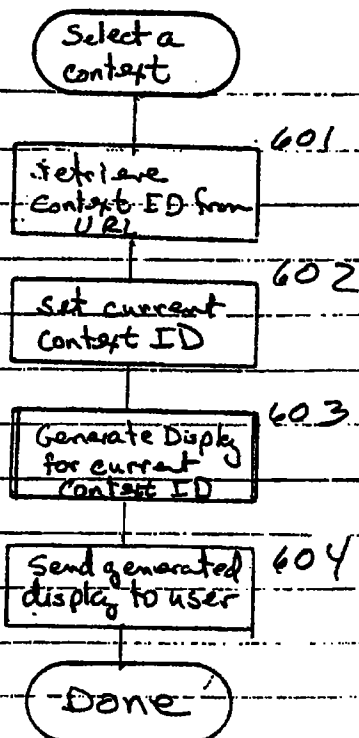 Select a
context
601
retrieve
Context ID from
URL
602
Set current
Context ID
603
Generate Display
for current
context ID
604
Send generated
display to user
Done